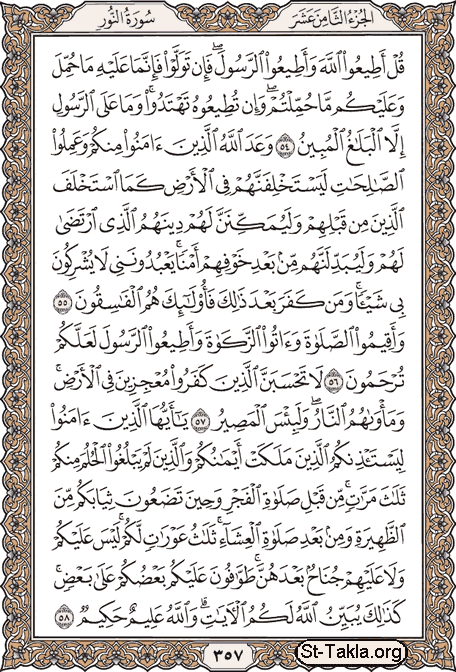 سُورَةُ النُّورِ الجُزءُ الثَّامِنَ عَشَرَ
قُلْ أَطِيعُوا۟ ٱللَّهَ وَأَطِيعُوا۟ ٱلرَّسُولَ ۖ فَإِن تَوَلَّوْا۟ فَإِنَّمَا عَلَيْهِ مَا حُمِّلَ
وَعَلَيْكُم مَّا حُمِّلْتُمْ ۖ وَإِن تُطِيعُوهُ تَهْتَدُوا۟ ۚ وَمَا عَلَى ٱلرَّسُولِ
إِلَّا ٱلْبَلَٰغُ ٱلْمُبِينُ ٥٤ وَعَدَ ٱللَّهُ ٱلَّذِينَ ءَامَنُوا۟ مِنكُمْ وَعَمِلُوا۟
ٱلصَّٰلِحَٰتِ لَيَسْتَخْلِفَنَّهُمْ فِى ٱلْأَرْضِ كَمَا ٱسْتَخْلَفَ
ٱلَّذِينَ مِن قَبْلِهِمْ وَلَيُمَكِّنَنَّ لَهُمْ دِينَهُمُ ٱلَّذِى ٱرْتَضَىٰ
لَهُمْ وَلَيُبَدِّلَنَّهُم مِّنۢ بَعْدِ خَوْفِهِمْ أَمْنًا ۚ يَعْبُدُونَنِى لَا يُشْرِكُونَ
بِى شَيْـًٔا ۚ وَمَن كَفَرَ بَعْدَ ذَٰلِكَ فَأُو۟لَٰٓئِكَ هُمُ ٱلْفَٰسِقُونَ ٥٥
وَأَقِيمُوا۟ ٱلصَّلَوٰةَ وَءَاتُوا۟ ٱلزَّكَوٰةَ وَأَطِيعُوا۟ ٱلرَّسُولَ لَعَلَّكُمْ
تُرْحَمُونَ ٥٦ لَا تَحْسَبَنَّ ٱلَّذِينَ كَفَرُوا۟ مُعْجِزِينَ فِى ٱلْأَرْضِ ۚ
وَمَأْوَىٰهُمُ ٱلنَّارُ ۖ وَلَبِئْسَ ٱلْمَصِيرُ ٥٧ يَٰٓأَيُّهَا ٱلَّذِينَ ءَامَنُوا۟
لِيَسْتَـْٔذِنكُمُ ٱلَّذِينَ مَلَكَتْ أَيْمَٰنُكُمْ وَٱلَّذِينَ لَمْ يَبْلُغُوا۟ ٱلْحُلُمَ مِنكُمْ
ثَلَٰثَ مَرَّٰتٍ ۚ مِّن قَبْلِ صَلَوٰةِ ٱلْفَجْرِ وَحِينَ تَضَعُونَ ثِيَابَكُم مِّنَ
ٱلظَّهِيرَةِ وَمِنۢ بَعْدِ صَلَوٰةِ ٱلْعِشَآءِ ۚ ثَلَٰثُ عَوْرَٰتٍ لَّكُمْ ۚ لَيْسَ عَلَيْكُمْ
وَلَا عَلَيْهِمْ جُنَاحٌۢ بَعْدَهُنَّ ۚ طَوَّٰفُونَ عَلَيْكُم بَعْضُكُمْ عَلَىٰ بَعْضٍ ۚ
كَذَٰلِكَ يُبَيِّنُ ٱللَّهُ لَكُمُ ٱلْـَٔايَٰتِ ۗ وَٱللَّهُ عَلِيمٌ حَكِيمٌ ٥٨
٣٥٧
St-Takla.org